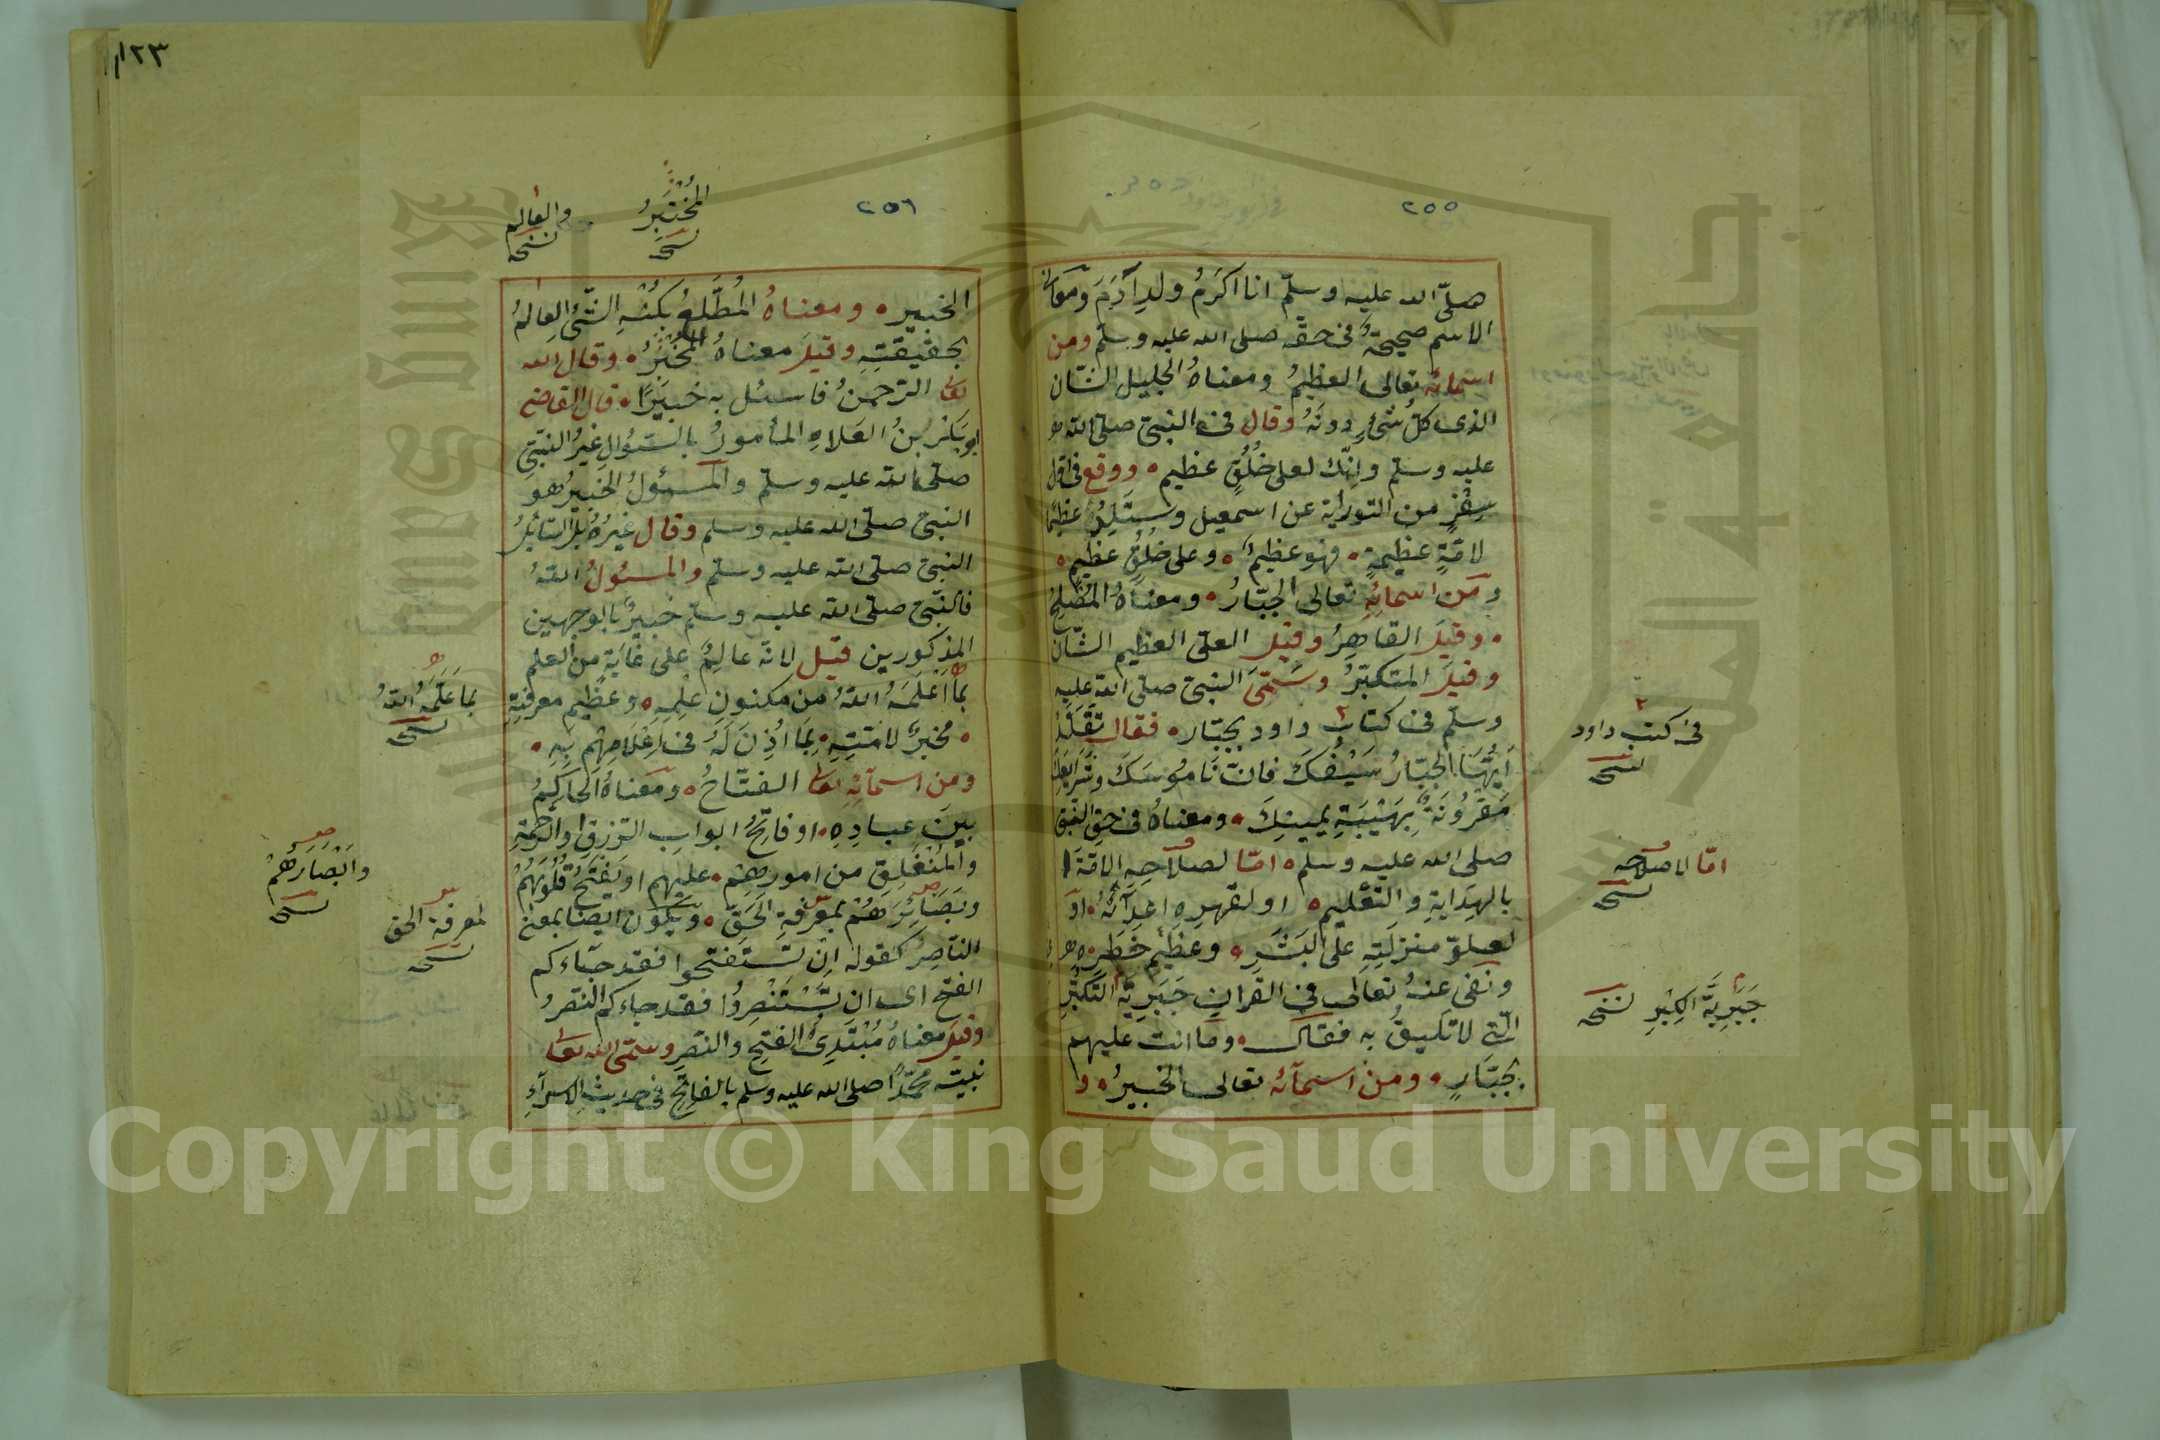 ٢٥٥
صلّى الله عليه وسلّم انا اكرَمُ ولدِ آدَمَ ومعانى
الاسم صحيحَةٌ فى حقّه صلى الله عليه وسلّم ومن
اسمائه تعالى العظيمُ ومعناهُ الجليل الشّان
الذى كلّ شئٍ دونَهُ وقال فى النبىّ صلى الله
عليه وسلّم وانّك لعلى خُلُقٍ عظيم ووقع فى اوّل
سِفْرٍ من التوراية عن اسمعيل وسيَلِدُ عظيمًا
لامّةٍ عظيمةٍ فهو عظيمٌ وعلى خُلُقٍ عظيمٍ
ومن اسمائِهِ تعالى الجبّارُ ومعناهُ المُصْلِحُ
وقيلَ القاهِرُ وقيلَ العلىّ العظيم الشّان
وقيلَ المتكبّرُ وسُمّىَ النبىّ صلى الله عليه
وسلّم فى كتاب داود بجبّار فقال تَقَلَّدْ
أيّهَا الجبّارُ سَيْفَكَ فانّ نَامُوسَكَ وشَرَايِعَكَ
مَقْرُونَةٌ بِهَيْبَةِ يمينِكَ ومعناهُ فى حقِّ النّبىّ
صلى الله عليه وسلم امّا لصلاحِهِ الامّةَ
بالهِدَايةِ والتّعْليمِ او لقَهرِهِ اعدَآئَهُ او
لعلوّ منزلَتِهِ على البَشَرِ وعظيم خَطَرِه
ونفى عنهُ تعالى فى القرانِ جَبَرِيّةَ التّكبّرِ
الّتى لا تليقُ به فقال وما انت عليهم
بجبّارٍ ومن اسمآئه تعالى الخبيرُ و
فى كتب داود
نسخه
امّا لاصلاحه
نسخه
جَبَرِيَّةَ الكِبْرِ نسخه
١٢٣
٢٥٦
المُخْتَبِرُ
نسخه
والعالم
نسخه
الخبير ومعناهُ المُطّلِعُ بكُنْهِ الشّئِ العالمُ
بحقيقتِهِ وقيلَ معناهُ المُخْبِرُ وقال الله
تعالى الرّحمنُ فاسئل به خبيرًا قال القاضى
ابو بَكرِ بنُ العَلاءِ المأمورُ بالسّؤالِ غيرُ النّبىّ
صلى الله عليه وسلّم والمسئولُ الخبيرُ هو
النبىّ صلّى الله عليه وسلم وقال غيرُهُ بل السّائلُ
النبىّ صلى الله عليه وسلّم والمسئولُ اللهُ
فالنّبىّ صلى الله عليه وسلّم خبيرٌ بالوجهين
المذكورين قيل لانّه عالِمٌ على غايَةٍ من العلم
بما أعْلَمَهُ اللهُ من مكنونِ علمِه وعظيم معرفتِهِ
مخبرٌ لامّتِهِ بما اُذِنَ لَهُ فى اعْلامِهِم بِهِ
ومن اسمآئِهِ تعالى الفتّاحُ ومعناهُ الحاكِمُ
بينَ عبادِهِ او فاتِحُ ابوابِ الرّزقِ والرّحمةِ
والمُنْغَلِقِ من امورِهِم عليهم او يَفْتَحُ قُلُوبَهُمْ
وبَصَائِرَهُمْ بمعرفةِ الحَقّ ويكون ايضًا بمعنى
النّاصِرِ كقوله اِن تَسْتَفتحوا فقد جآءكم
الفتح اى ان تَسْتَنْصِرُوا فقد جاءكم النّصرُ
وقيلَ معناهُ مُبْتَدِئُ الفتحِ والنصرِ وسمّى الله تعالى
نبيّه محمّدًا صلى الله عليه وسلم بالفاتحِ فى حديثِ الاسرآءِ
بما عَلّمَهُ اللهُ
نسخه
وابْصَارَهُمْ
نسخه
لمعرفة الحق
نسخه
Copyright © King Saud University